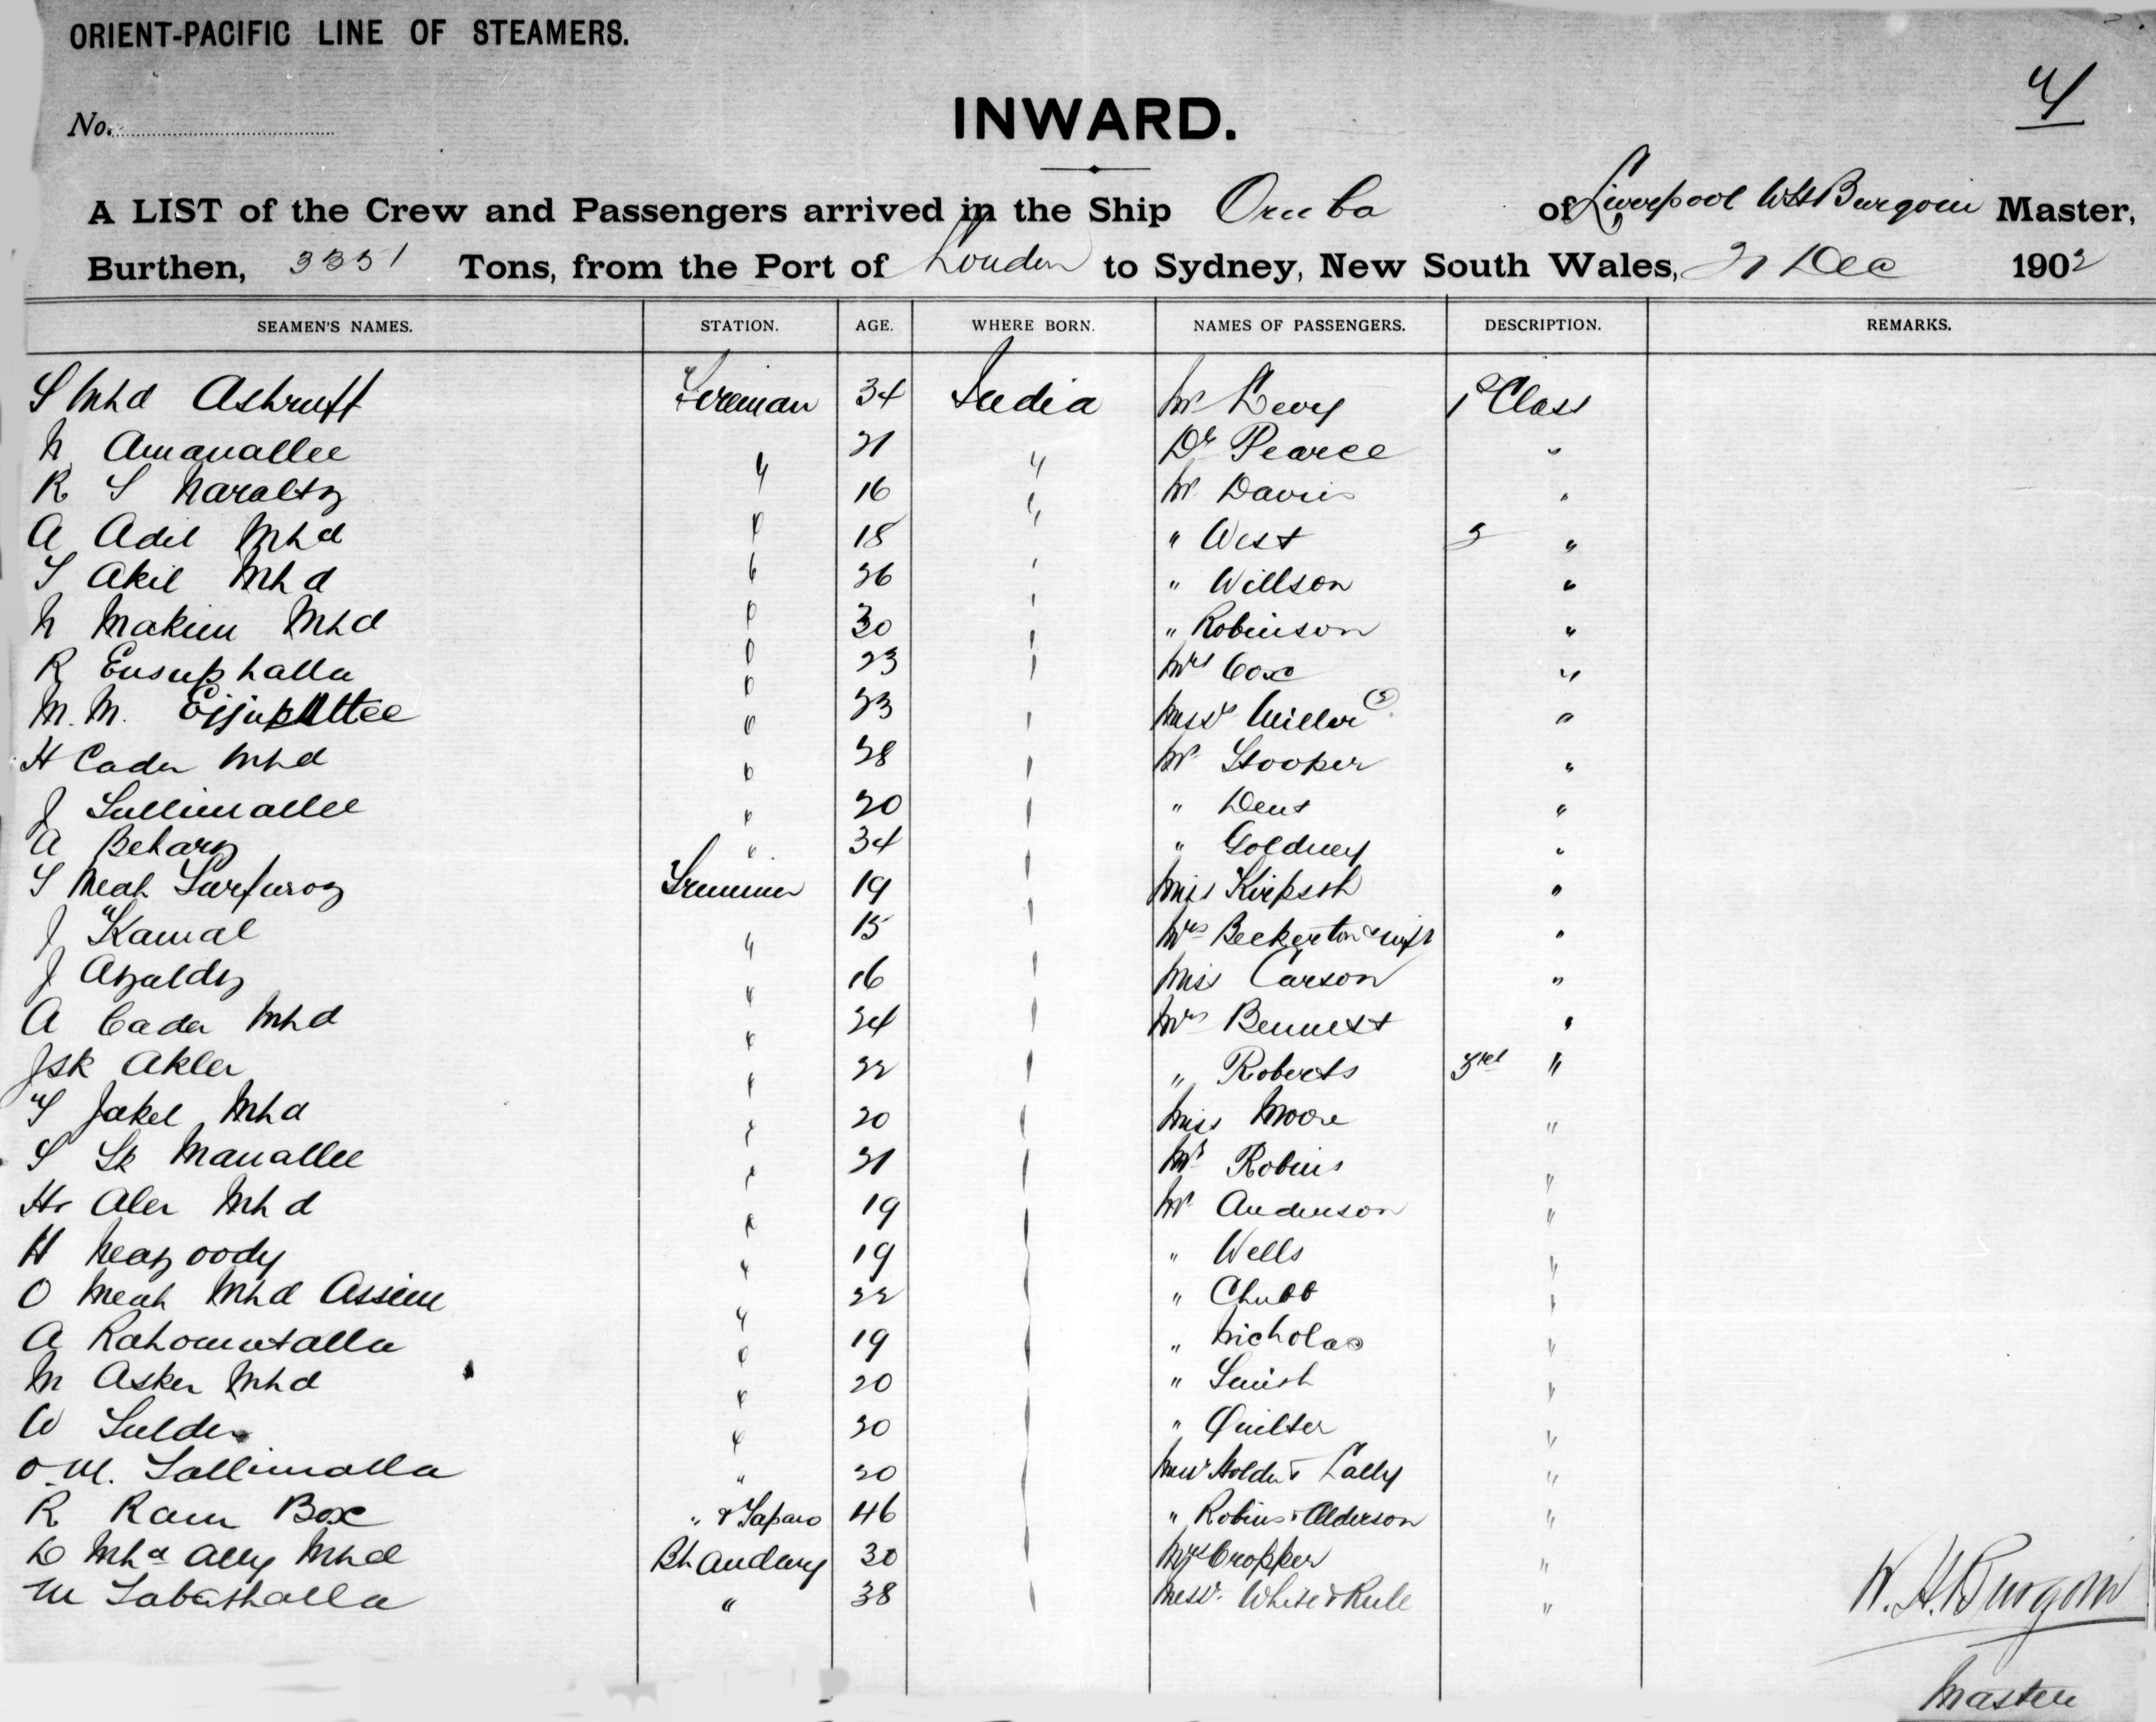 ORIENT-PACIFIC LINE OF STEAMERS.
4
No.
INWARD.
A LIST of the Crew and Passengers arrived in the Ship Oruba of Liverpool WH Burgoin Master,
Burthen, 3351 Tons, from the Port of London to Sydney, New South Wales, Dec 1902
SEAMEN'S NAMES. STATION. AGE. WHERE BORN. NAMES OF PASSENGERS. DESCRIPTION. REMARKS.
S Mhd Ashruff Fireman 34 India Mr Levy 1 Class
N Amanallee " 21 " Dr Pearce "
R S " 16 " Mr Davis "
A Adil Mhd " 18 " " West "
S Akil Mhd " 26 " " Willson "
N Makim Mhd " 30 " " Robinson "
R Eusuphalla " 23 " Mrs Cox "
M. M. " 23 " Messrs Miller (2) "
H Cader Mhd " 28 " Mr Hooper "
J Sullimallee " 20 " " Dent "
A Behary " 34 " " Goldney "
S Meah Surfuroz Trimmer 19 " Miss "
J Kamal " 15 " Mrs Beckerton & "
J " 16 " Miss Carson "
A Cader Mhd " 24 " Mrs Bennett "
J SK Akler " 22 " " Roberts 3rd "
S Jakel Mhd " 20 " Miss Moore "
S Sk Manallee " 21 " Mr Robins "
H Aler Mhd " 19 " Mr Anderson "
H " 19 " " Wells "
O Meah Mhd Assim " 22 " " Chubb "
A Rahomutalla " 19 " " Nicholas "
M Asker Mhd " 20 " " Smith "
W " 20 " " Quilter "
O M. Sallimalla " 20 " Messrs Holder & Lally "
R Ram Box " & 46 " " Robins & Alderson "
D Mhd Ally Mhd Bhandary 30 " Mrs Cropper "
M " 38 " Messrs White & Rule "
W. H. Burgoin
Master